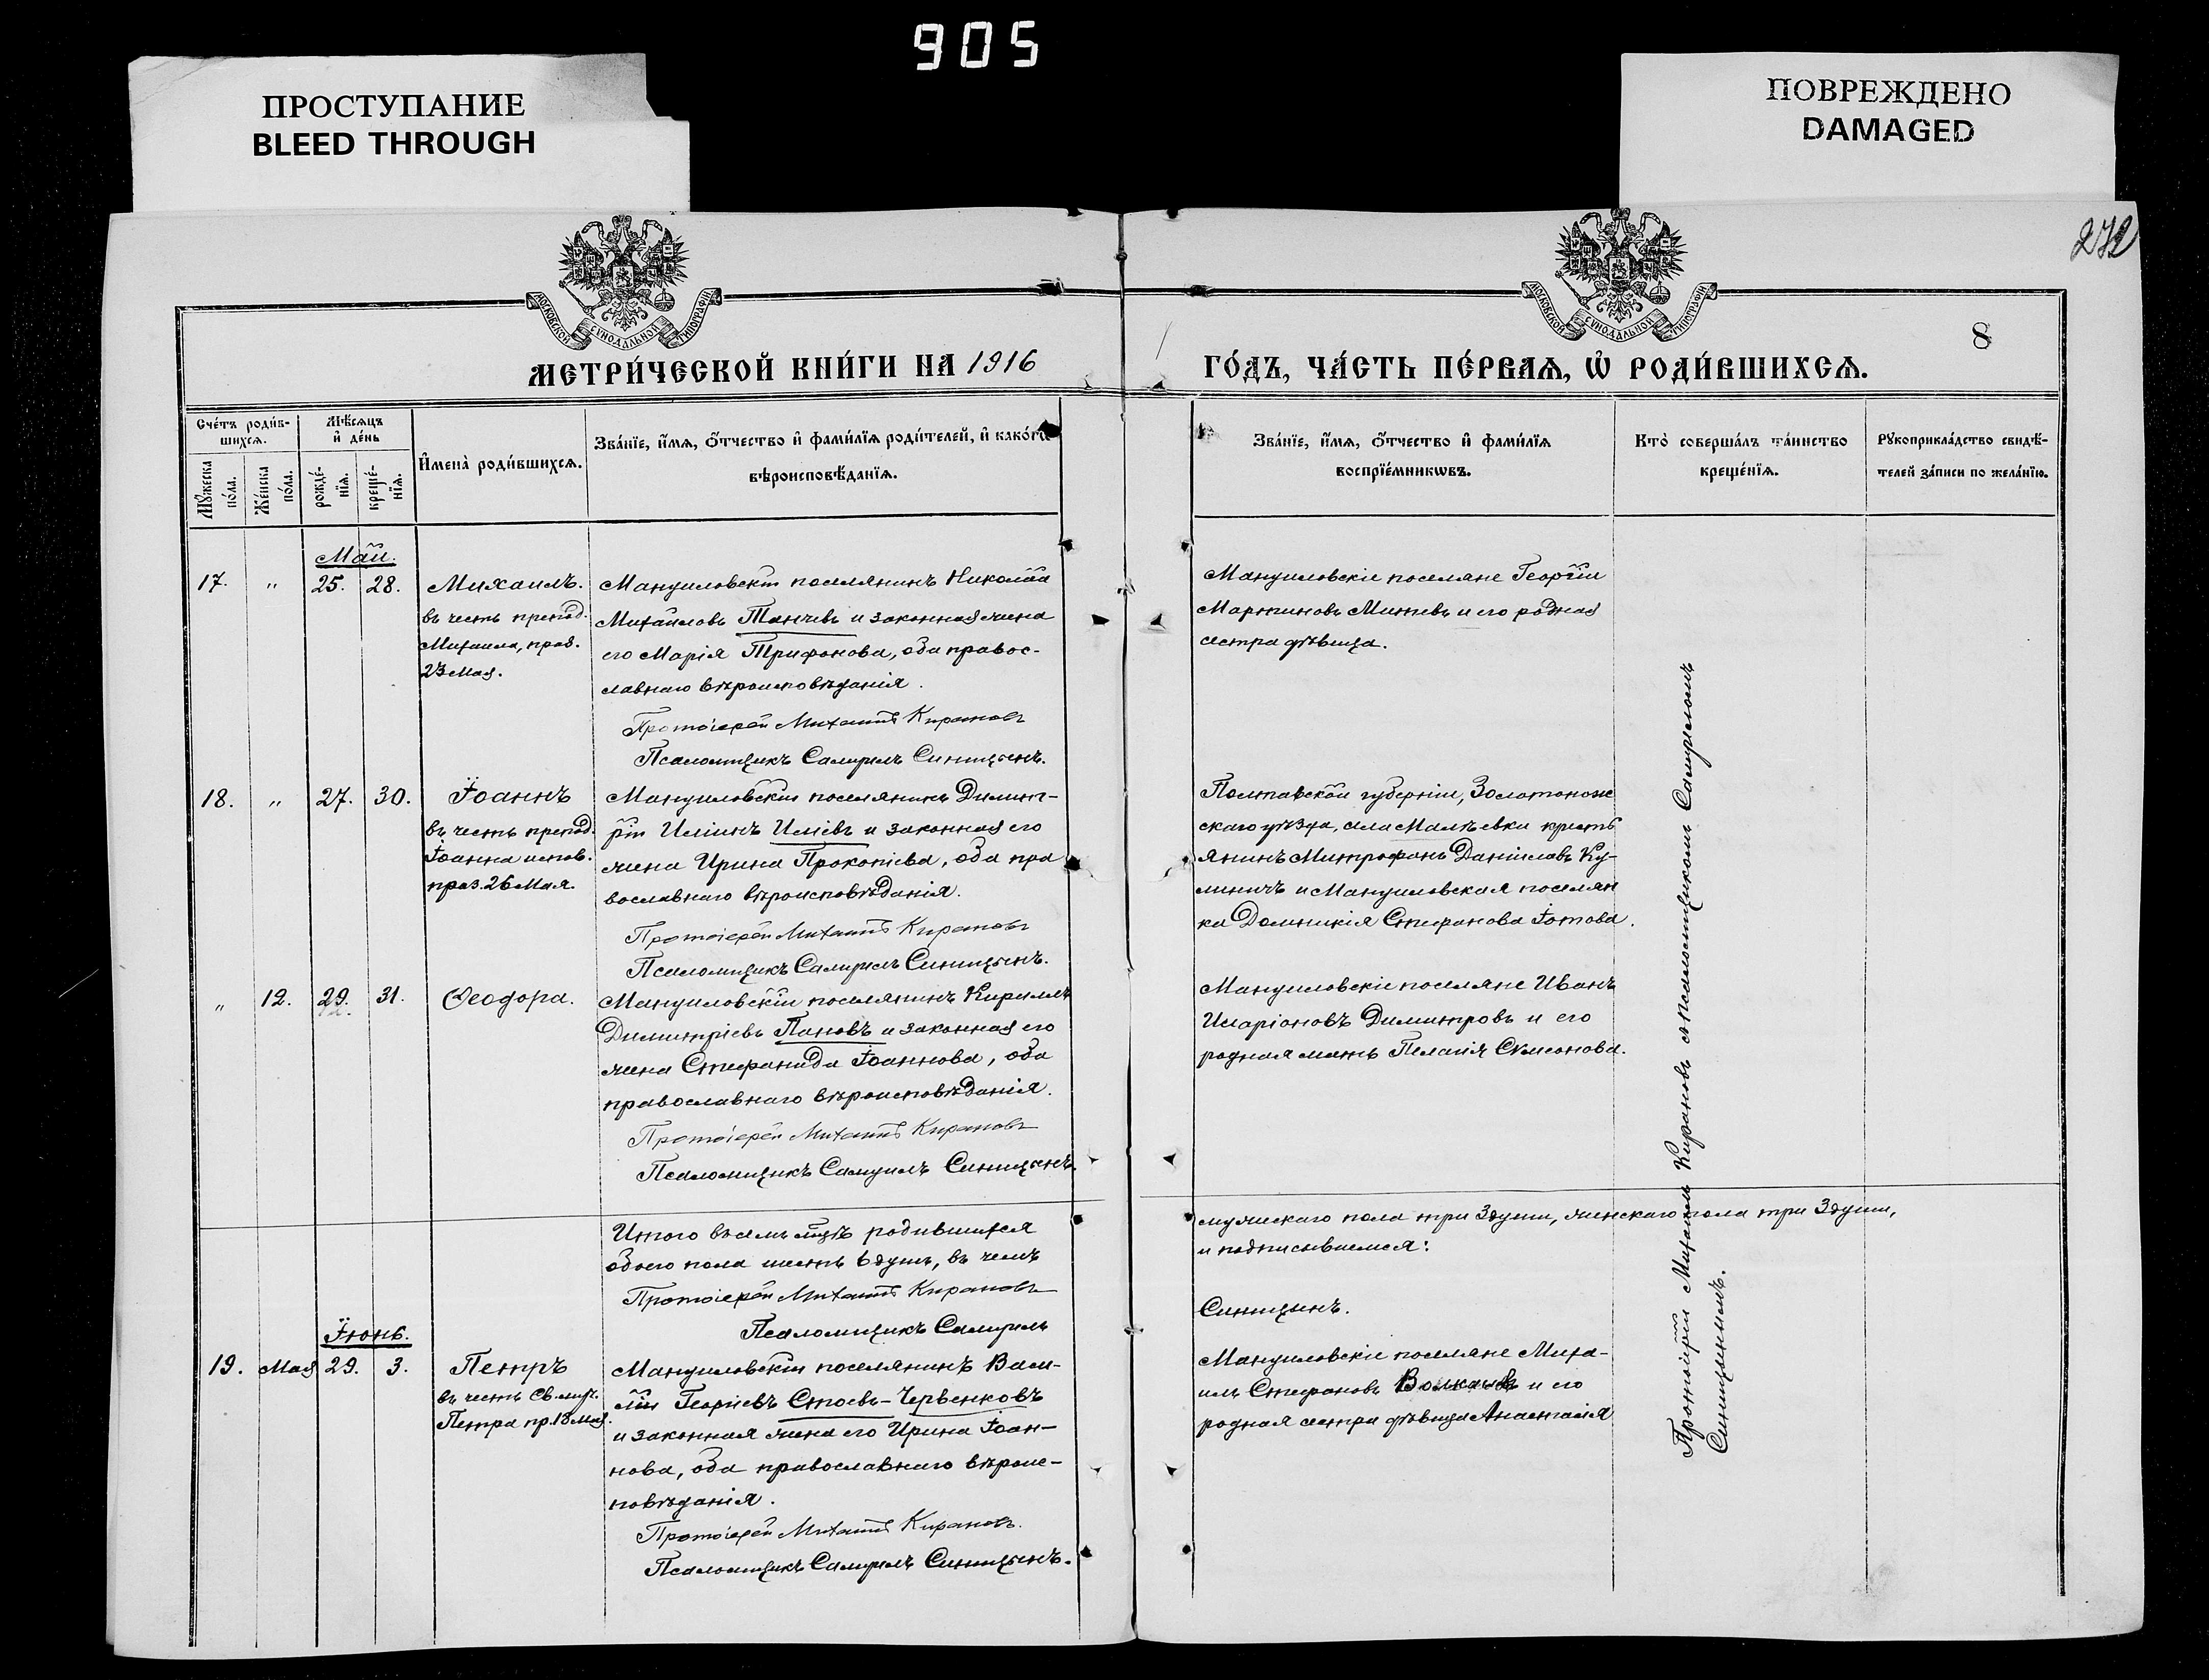 905
ПРОСТУПАНИЕ
BLEED THROUGH
ПОВРЕЖДЕНО
DAMAGED
272
МОСКОВСКОЙ СѴНОДАЛЬНОЙ ТИПОГРАФІИ
МОСКОВСКОЙ СѴНОДАЛЬНОЙ ТИПОГРАФІИ
8
МЕТРИ́ЧЕСКОЙ КНИ́ГИ НА 1916
ГО́ДЪ, ЧА́СТЬ ПЕ́РВАѦ, Ѡ҆ РОДИ́ВШИХСѦ.
Сче́тъ роди́в-
шихсѧ.
Мѣ́сѧцъ
и҆ де́нь
Мꙋ́жеска
по́ла.
Же́нска
по́ла.
рожде́-
нїѧ.
креще́-
нїѧ.
И҆мена̀ роди́вшихсѧ.
Зва́нїе, и҆́мѧ, ѻ҆́тчество и҆ фами́лїѧ роди́телей, и҆ како́гѡ
вѣроисповѣ́данїѧ.
Зва́нїе, и҆́мѧ, ѻ҆́тчество и҆ фами́лїѧ
воспрїе́мникѡвъ.
Кто̀ соверша́лъ та́инство
креще́нїѧ.
Рꙋкоприкла́дство свидѣ́-
телей за́писи по жела́нїю.
Май.
17. " 25. 28. Михаилъ.
въ честь препод.
Михаила, праз.
23 Мая.
Мануиловскій поселянинъ Николай
Михайловъ Танчевъ и законная жена
его Марія Трифонова, оба правос-
лавнаго вѣроисповѣданія.
Протоіерей Михаилъ Кирановъ
Псаломщикъ Самуилъ Синицынъ.
Мануиловскіе поселяне Георгій
Мартиновъ Митевъ и его родная
сестра дѣвица.
18. " 27. 30. Іоаннъ
въ честь препод.
Іоанна испов.
праз. 26 Мая.
Мануиловскій поселянинъ Димит-
рій Иліинъ Иліевъ и законная его
жена Ирина Прокопіева, оба пра
вославнаго вѣроисповѣданія.
Протоіерей Михаилъ Кирановъ
Псаломщикъ Самуилъ Синицынъ.
Полтавской губерніи, Золотонош
скаго уѣзда, села Малѣевки кресть
янинъ Митрофанъ Даниловъ Ку-
линичъ и Мануиловская поселян
ка Домникія Стефанова Іотова.
" 12. 29. 31. Ѳеодора.
Мануиловскій поселянинъ Кириллъ
Димитріевъ Пановъ и законная его
жена Стефанида Іоаннова, оба
православнаго вѣроисповѣданія.
Протоіерей Михаилъ Кирановъ
Псаломщикъ Самуилъ Синицынъ.
Мануиловскіе поселяне Иванъ
Иларіоновъ Димитровъ и его
родная мать Пелагія Симеонова.
Итого въ семъ родившихся
обоего пола шесть 6 душъ, въ чемъ
Протоіерей Михаилъ Кирановъ
Псаломщикъ Самуилъ
мужескаго пола три 3 души, женскаго пола три 3 души,
и подписываемся:
Синицынъ.
Іюнь.
19. Мая 29. 3. Петръ
въ честь Св. муч.
Петра пр. 18 Мая.
Мануиловскій поселянинъ Васи-
лій Георгіевъ Стоевъ-Червенковъ
и законная жена его Ирина Іоан-
нова, оба православнаго вѣроис-
повѣданія.
Протоіерей Михаилъ Кирановъ.
Псаломщикъ Самуилъ Синицынъ.
Мануиловскіе поселяне Миха-
илъ Стефановъ Волкановъ и его
родная сестра дѣвица Анастасія
Протоіерей Михаилъ Кирановъ съ псаломщикомъ Самуиломъ
Синицынымъ.